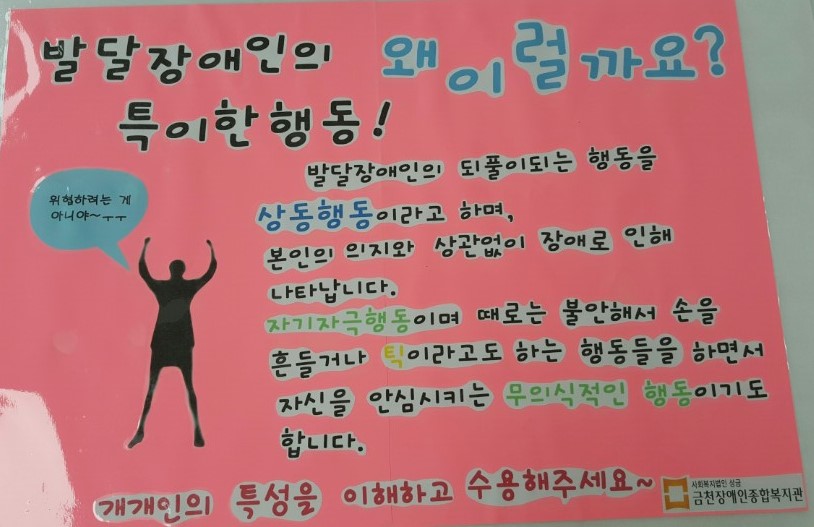 발달장애인의 왜이럴까요?
특이한행동!
발달장애인의 되풀이되는 행동을
상동행동이라고 하며,
본인의 의지와 상관없이 장애로 인해
나타납니다.
자기자극행동이며 때로는 불안해서 손을
흔들거나 틱이라고도 하는 행동들을 하면서
자신을 안심시키는 무의식적인 행동이기도
합니다.
위협하려는 게
아니야~ㅜㅜ
개개인의 특성을 이해하고 수용해주세요~
사회복지법인 상금
금천장애인종합복지관